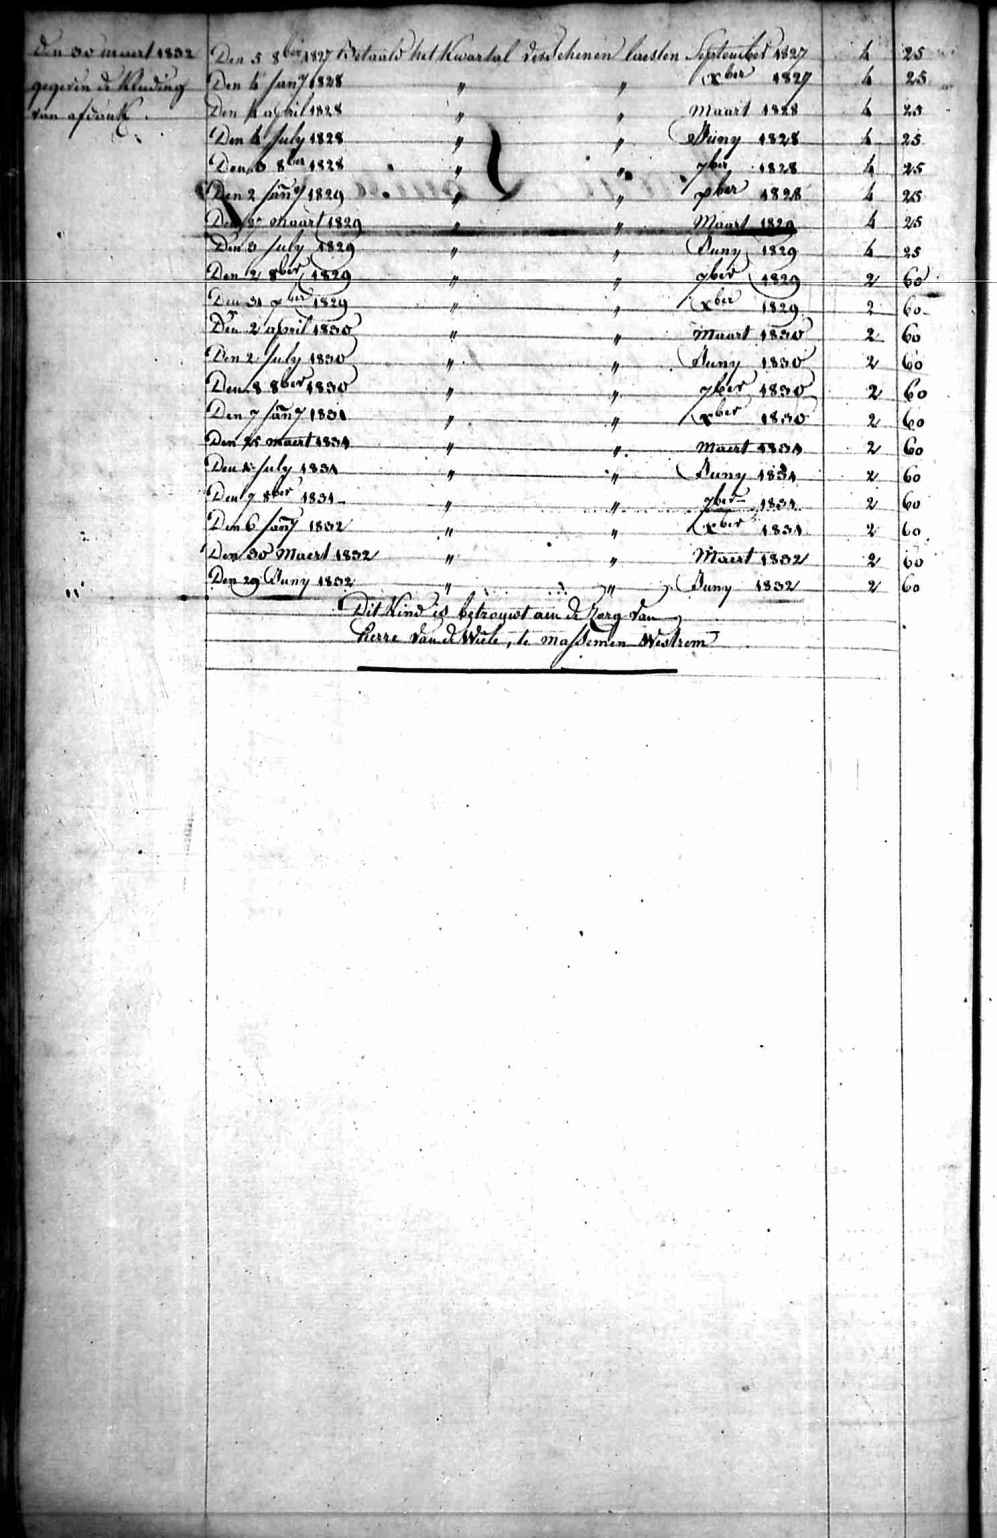 Den 30 maert 1832
gegeven de kleding
van afdank.
Den 5 8ber 1827 Betaald het Kwartal verschenen laesten September 1827 4 25
Den 4 Jany 1828 " " xber 1827 4 25
Den 4 april 1828 " " Maart 1828 4 25
Den 4 July 1828 " " Juny 1828 4 25
Den 3 8ber 1828 " " 7ber 1828 4 25
Den 2 Jany 1829 " " xber 1828 4 25
Den maart 1829 " " Maart 1829 4 25
Den 3 July 1829 " " Juny 1829 4 25
Den 2 8ber 1829 " " 7ber 1829 2 60
Den 31 xber 1829 " " xber 1829 2 60
Den 2 april 1830 " " Maart 1830 2 60
Den 2 July 1830 " " Juny 1830 2 60
Den 8 8ber 1830 " " 7ber 1830 2 60
Den 7 Jany 1831 " " xber 1830 2 60
Den 25 maert 1831 " " Maert 1831 2 60
Den 1 July 1831 " " Juny 1831 2 60
Den 7 8ber 1831 " " 7ber 1831 2 60
Den 6 Jany 1832 " " xber 1831 2 60
Den 30 Maert 1832 " " Maert 1832 2 60
Den 29 Juny 1832 " " Juny 1832 2 60
Dit Kind is betrouwt aen de Zorg van
Pierre Van de Wiele, te Massemen Westrem